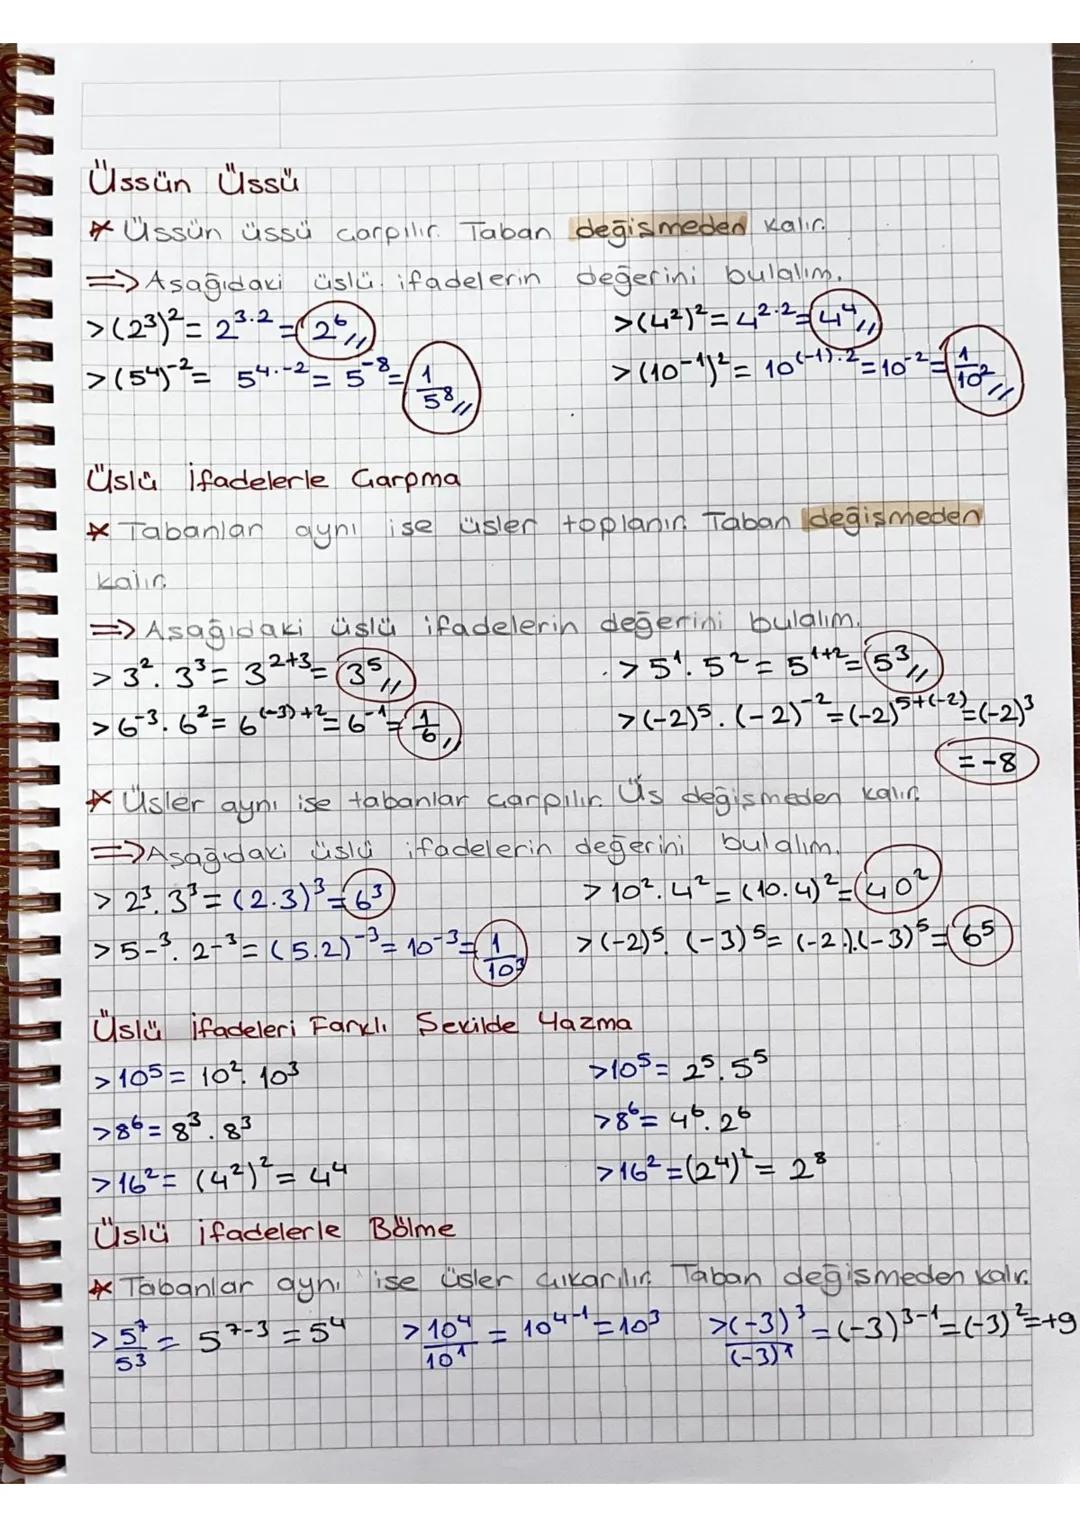 Üssün Üssü
* Üssün üssü çarpılır. Taban değişmeden kalır.
=> Aşağıdaki üslü ifadelerin değerini bulalım.
> (2³)² = 2³·² = 2⁶,, > (4²)² = 4²·² = 4⁴,,
> (5⁴)⁻² = 5⁴·⁻² = 5⁻⁸ = 1/5⁸,, > (10⁻¹)² = 10⁽⁻¹⁾·² = 10⁻² = 1/10²,,
Üslü İfadelerle Çarpma
* Tabanlar aynı ise üsler toplanır. Taban değişmeden
kalır.
=> Aşağıdaki üslü ifadelerin değerini bulalım.
> 3² . 3³ = 3²⁺³ = 3⁵,, > 5¹ . 5² = 5¹⁺² = 5³,,
> 6⁻³ . 6² = 6⁽⁻³⁾⁺² = 6⁻¹ = 1/6,, > (-2)⁵ . (-2)⁻² = (-2)⁵⁺⁽⁻²⁾ = (-2)³
= -8
* Üsler aynı ise tabanlar çarpılır. Üs değişmeden kalır.
=> Aşağıdaki üslü ifadelerin değerini bulalım.
> 2³ . 3³ = (2.3)³ = 6³ > 10² . 4² = (10.4)² = 40²
> 5⁻³ . 2⁻³ = (5.2)⁻³ = 10⁻³ = 1/10³ > (-2)⁵ . (-3)⁵ = (-2).(-3)⁵ = 6⁵
Üslü İfadeleri Farklı Şekilde Yazma
> 10⁵ = 10² . 10³ > 10⁵ = 2⁵ . 5⁵
> 8⁶ = 8³ . 8³ > 8⁶ = 4⁶ . 2⁶
> 16² = (4²)² = 4⁴ > 16² = (2⁴)² = 2⁸
Üslü ifadelerle Bölme
* Tabanlar aynı ise üsler çıkarılır. Taban değişmeden kalır.
> 5⁷/5³ = 5⁷⁻³ = 5⁴ > 10⁴/10¹ = 10⁴⁻¹ = 10³ > (-3)³/(-3)¹ = (-3)³⁻¹ = (-3)² = +9